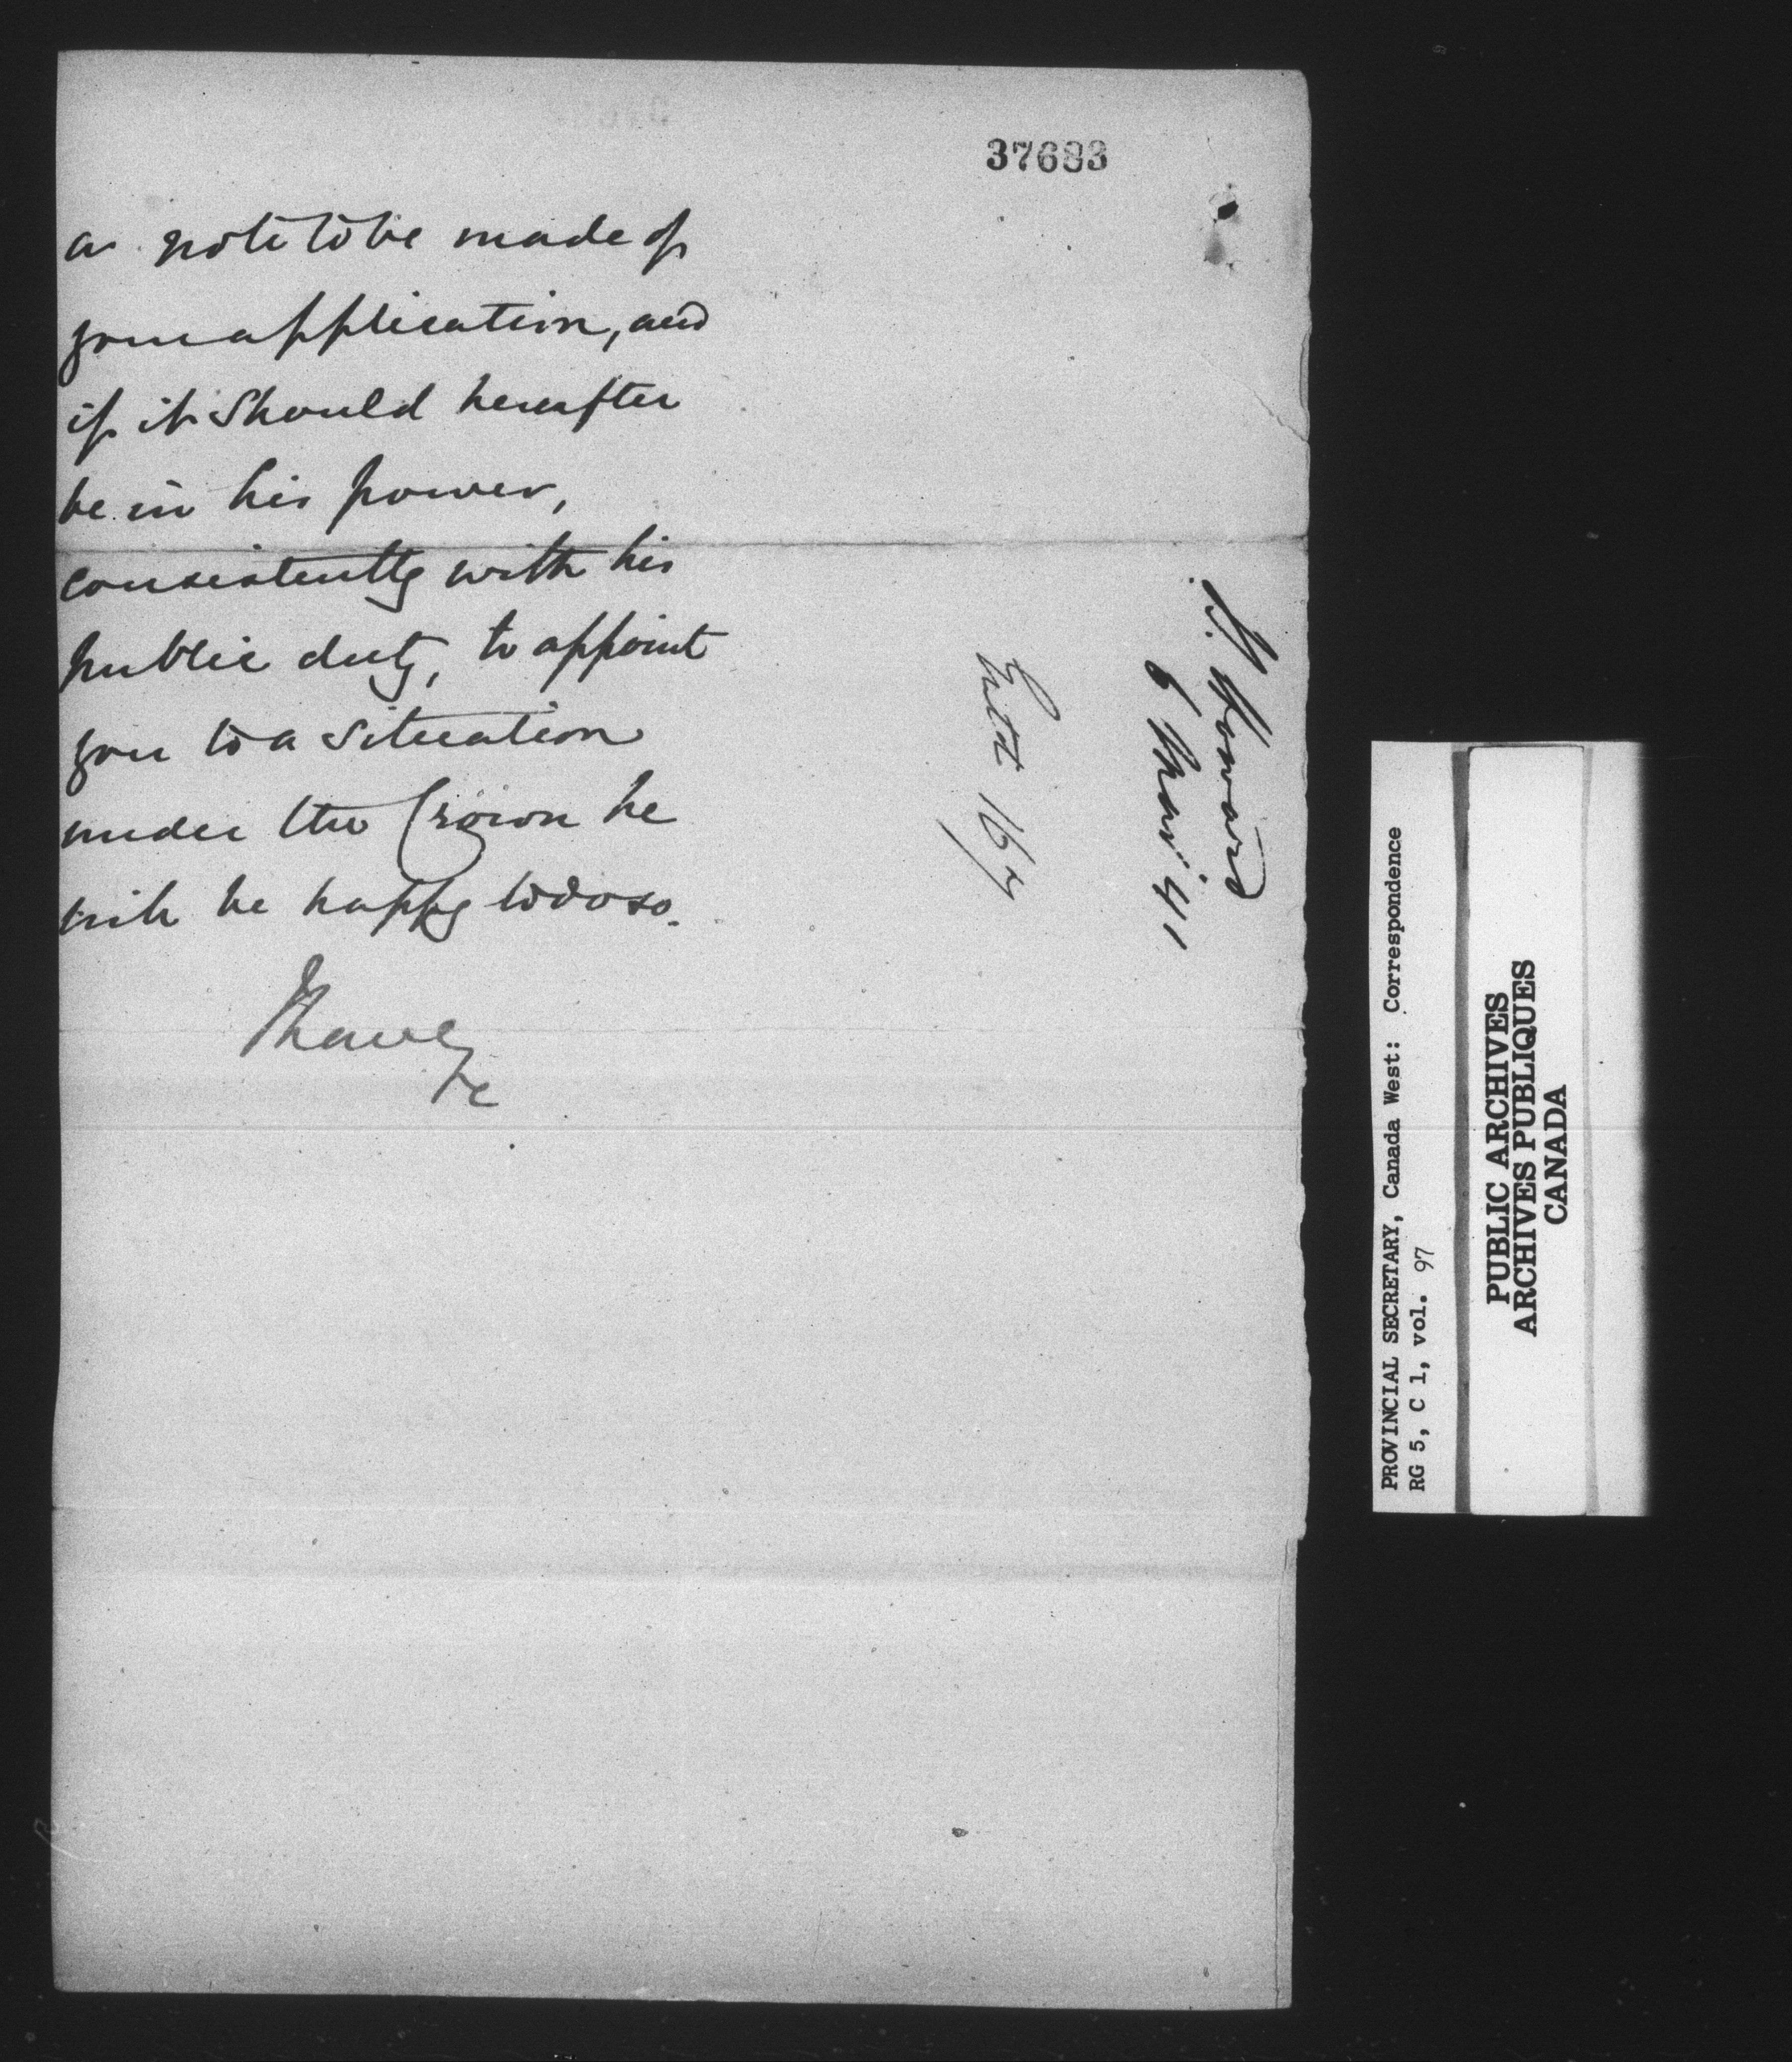 37683
a note to be made of
your application, and
if it should hereafter
be in his power,
consistently with his
public duty, to appoint
you to a situation
under the Crown he
will be happy to do so.
I have &c
J. Howard
6 Mar: 41
Entd 167
PROVINCIAL SECRETARY, Canada West: Correspondence
RG 5, C 1, vol. 97
PUBLIC ARCHIVES
ARCHIVES PUBLIQUES
CANADA